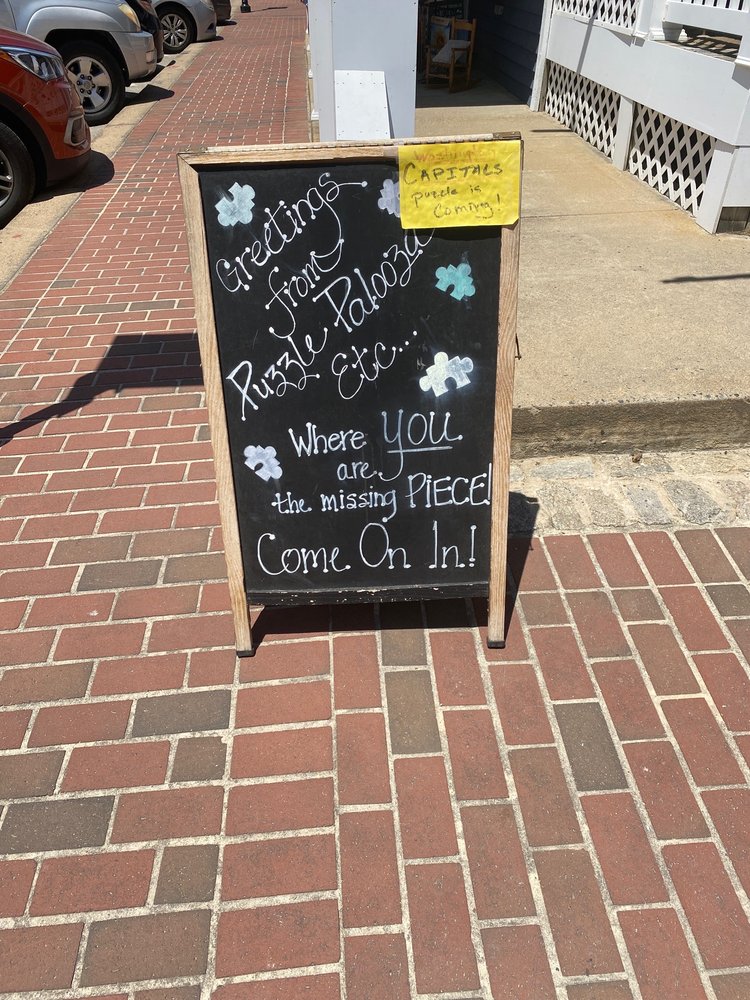 Greetings
from
Puzzle Palooza
Etc...
Where you
are
the missing PIECE!
Come On In!
CAPITALS
puzzle is
Coming!